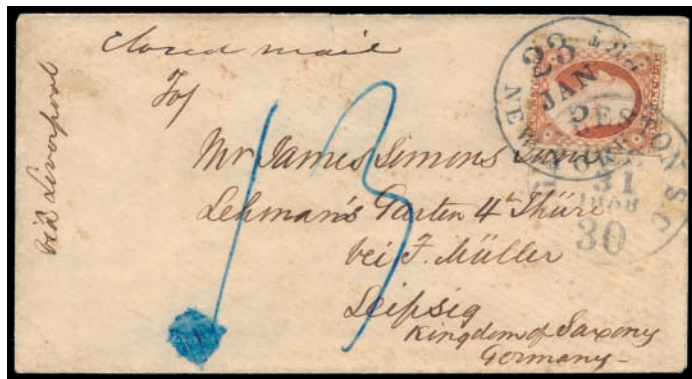 Closed mail
via Liverpool
To/
Mr James Simons
Lehman's Garten 4te Thüre
bei F. Müller
Leipsig
Kingdom of Saxony
Germany-
13
23
JAN
NEW YORK
31
1858
30